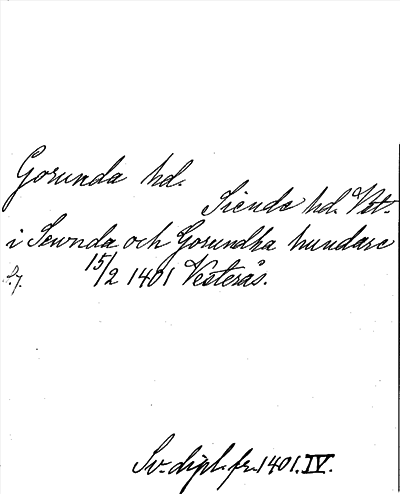 Gorunda hd.
Siende hd. Vst.
i Sewnda och Gorundha hundare
S. 7. 15/2 1401 Vesterås.
Sv. dipl. fr. 1401. IV.